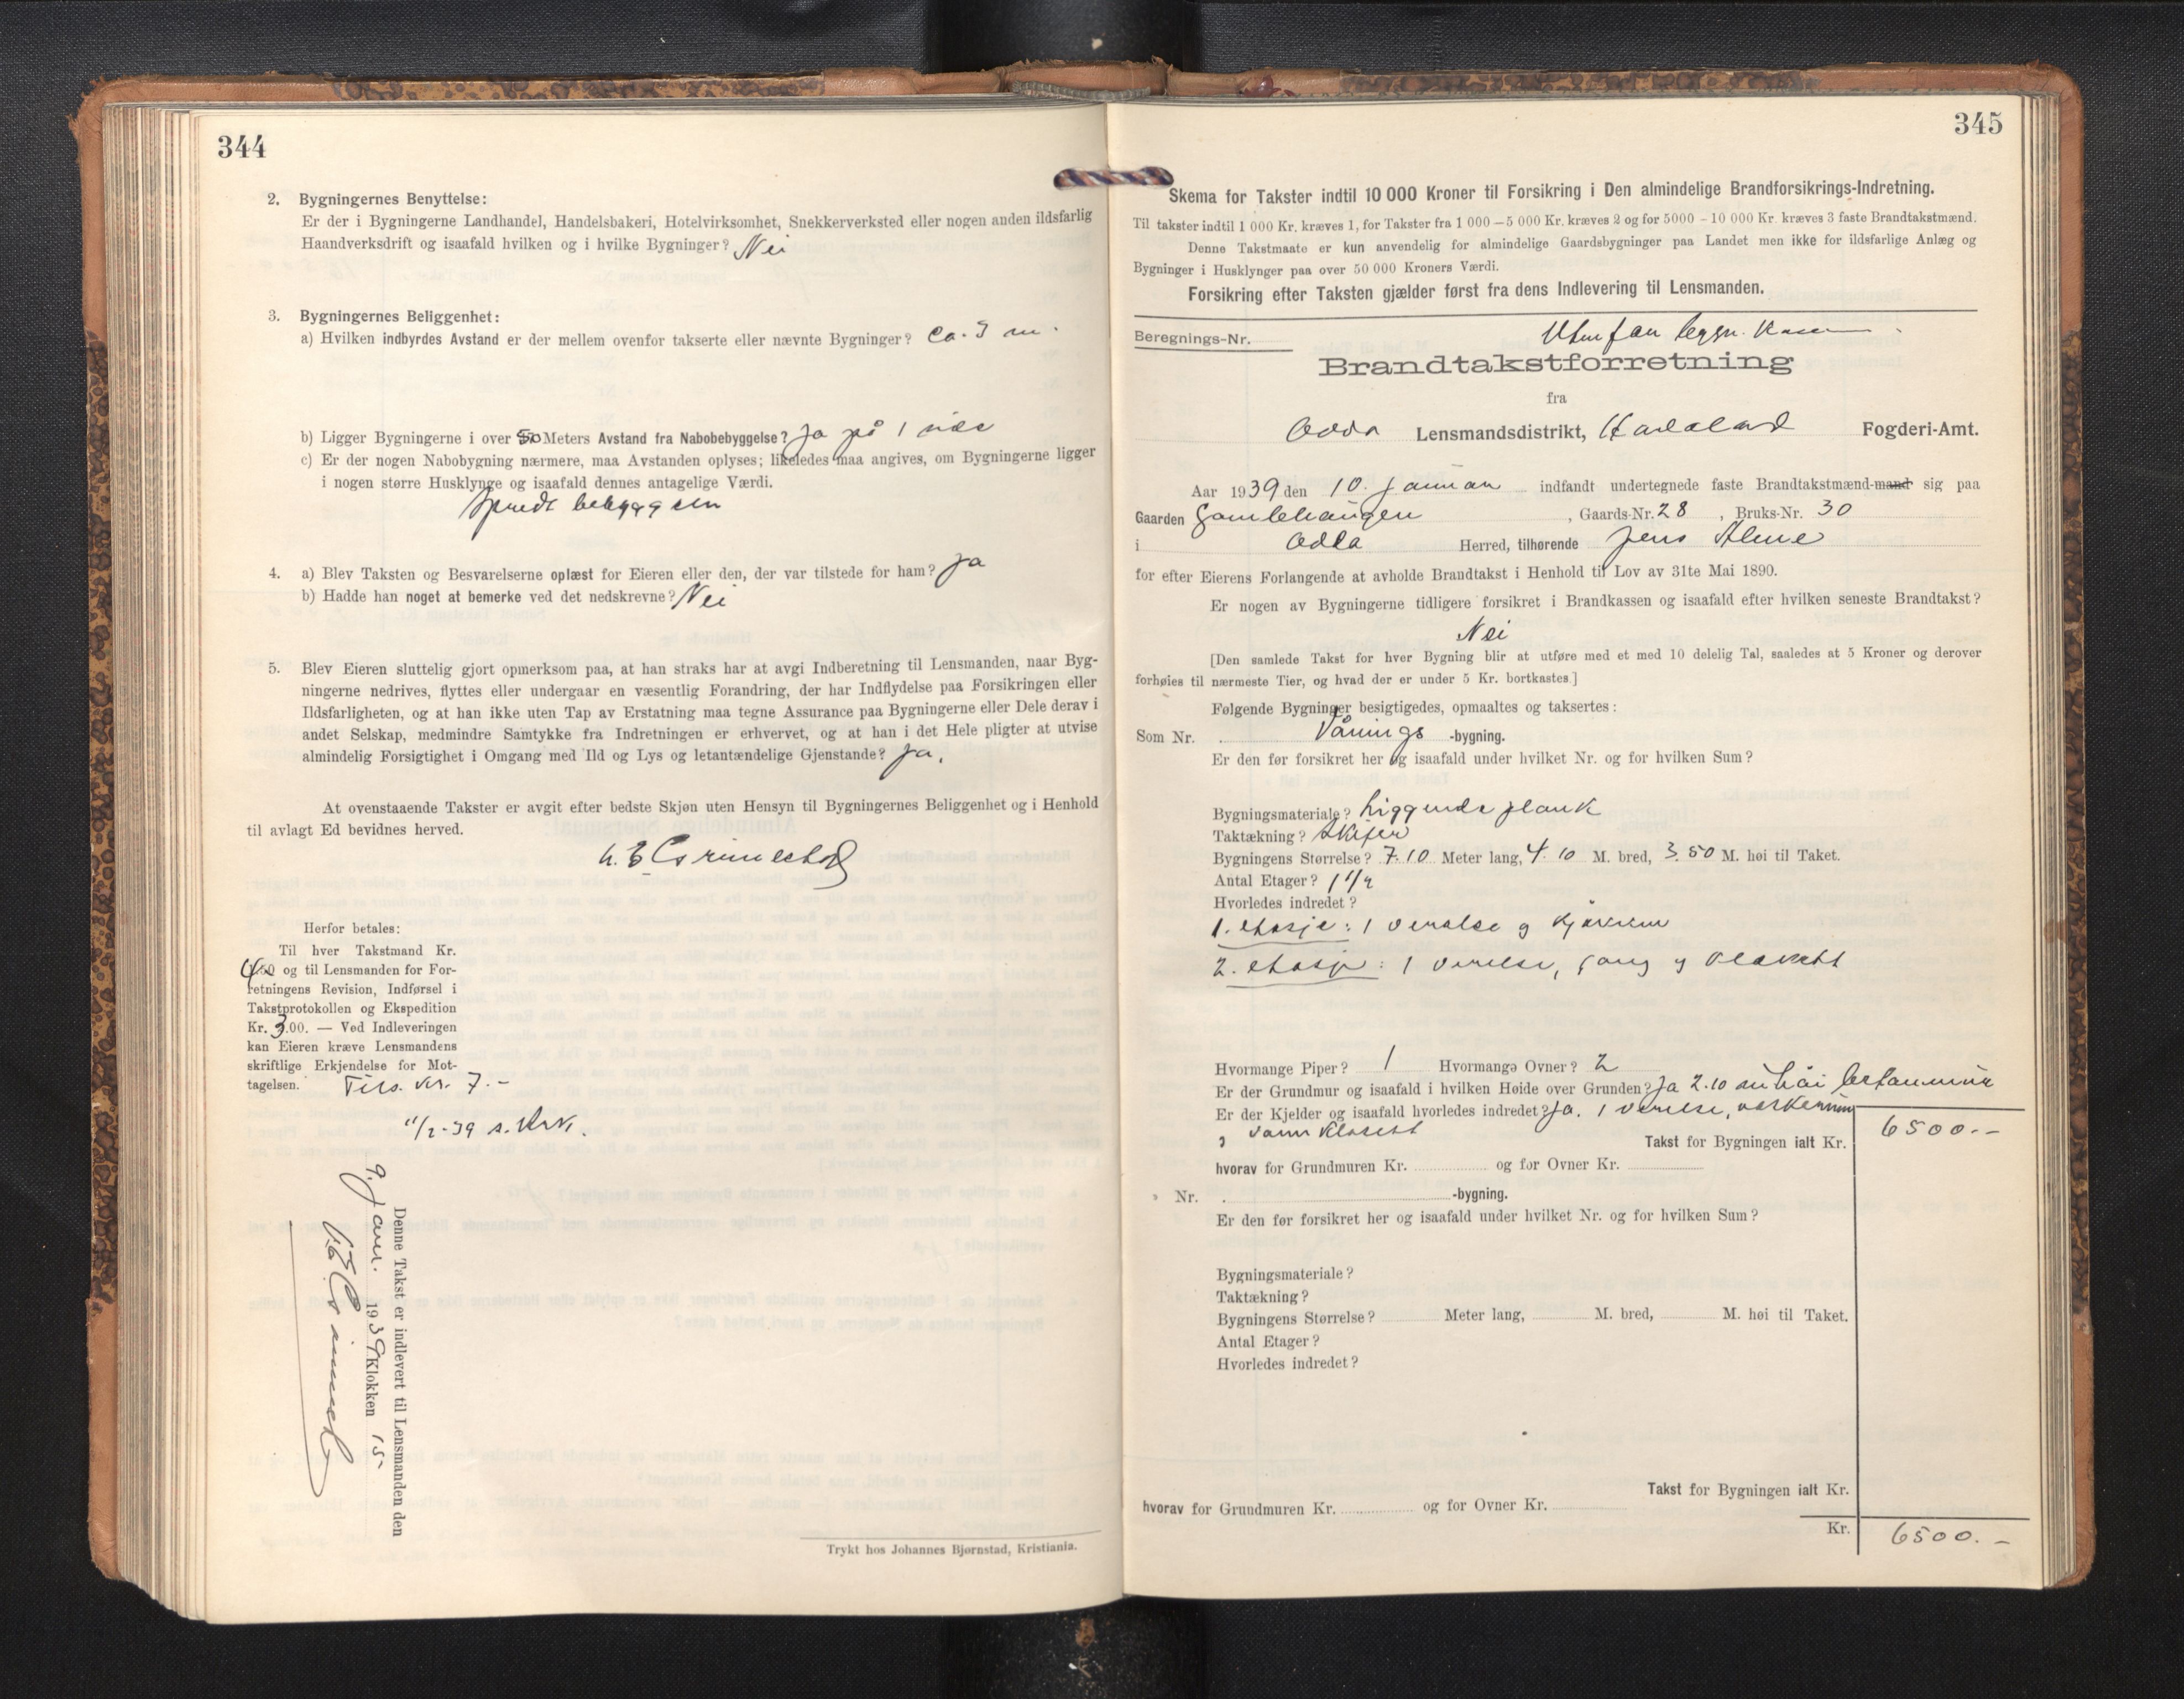 344
2. Bygningernes Benyttelse:
Er der i Bygningerne Landhandel, Handelsbakeri, Hotelvirksomhet, Snekkerverksted eller nogen anden ildsfarlig
Haandverksdrift og isaafald hvilken og i hvilke Bygninger? Nei
3. Bygningernes Beliggenhet:
a) Hvilken indbyrdes Avstand er der mellem ovenfor takserte eller nævnte Bygninger? ca. 3 m.
b) Ligger Bygningerne i over 50 Meters Avstand fra Nabobebyggelse? Ja på 1 nær
c) Er der nogen Nabobygning nærmere, maa Avstanden oplyses; likeledes maa angives, om Bygningerne ligger
i nogen større Husklynge og isaafald dennes antagelige Værdi.
Spredt bebyggelse
4. a) Blev Taksten og Besvarelserne oplæst for Eieren eller den, der var tilstede for ham? Ja
b) Hadde han noget at bemerke ved det nedskrevne? Nei
5. Blev Eieren sluttelig gjort opmerksom paa, at han straks har at avgi Indberetning til Lensmanden, naar Byg-
ningerne nedrives, flyttes eller undergaar en væsentlig Forandring, der har Indflydelse paa Forsikringen eller
Ildsfarligheten, og at han ikke uten Tap av Erstatning maa tegne Assurance paa Bygningerne eller Dele derav i
andet Selskap, medmindre Samtykke fra Indretningen er erhvervet, og at han i det Hele pligter at utvise
almindelig Forsigtighet i Omgang med Ild og Lys og letantændelige Gjenstande? Ja.
At ovenstaaende Takster er avgit efter bedste Skjøn uten Hensyn til Bygningernes Beliggenhet og i Henhold
til avlagt Ed bevidnes herved.
Herfor betales:
Til hver Takstmand Kr.
4.50 og til Lensmanden for For-
retningens Revision, Indførsel i
Takstprotokollen og Ekspedition
Kr. 3.00. — Ved Indleveringen
kan Eieren kræve Lensmandens
skriftlige Erkjendelse for Mot-
tagelsen. Tils. kr. 7.-
11/2-39
Denne Takst er indlevert til Lensmanden den
9. Januar. 1939 Klokken 15
Trykt hos Johannes Bjørnstad, Kristiania.
345
Skema for Takster indtil 10 000 Kroner til Forsikring i Den almindelige Brandforsikrings-Indretning.
Til takster indtil 1 000 Kr. kræves 1, for Takster fra 1 000 – 5 000 Kr. kræves 2 og for 5000 – 10 000 Kr. kræves 3 faste Brandtakstmænd.
Denne Takstmaate er kun anvendelig for almindelige Gaardsbygninger paa Landet men ikke for ildsfarlige Anlæg og
Bygninger i Husklynger paa over 50 000 Kroners Værdi.
Forsikring efter Taksten gjælder først fra dens Indlevering til Lensmanden.
Beregnings-Nr.
Brandtakstforretning
fra
Odda Lensmandsdistrikt, Hordaland Fogderi-Amt.
Aar 1939 den 10. januar indfandt undertegnede faste Brandtakstmænd-mand sig paa
Gaarden Gamlehaugen, Gaards-Nr. 28, Bruks-Nr. 30
i Odda Herred, tilhørende Jens Alme
for efter Eierens Forlangende at avholde Brandtakst i Henhold til Lov av 31te Mai 1890.
Er nogen av Bygningerne tidligere forsikret i Brandkassen og isaafald efter hvilken seneste Brandtakst?
Nei
[Den samlede Takst for hver Bygning blir at utføre med et med 10 delelig Tal, saaledes at 5 Kroner og derover
forhøies til nærmeste Tier, og hvad der er under 5 Kr. bortkastes.]
Følgende Bygninger besigtigedes, opmaaltes og taksertes:
Som Nr. . Vånings -bygning.
Er den før forsikret her og isaafald under hvilket Nr. og for hvilken Sum?
Bygningsmateriale? Liggende plank
Taktækning? Skifer
Bygningens Størrelse? 7.10 Meter lang, 4.10 M. bred, 3.50 M. høi til Taket.
Antal Etager? 1 1/2
Hvorledes indredet?
1. etasje: 1 værelse og kjøkken
2. etasje: 1 værelse, gang og klosett
Hvormange Piper? 1 Hvormange Ovner? 2
Er der Grundmur og isaafald i hvilken Høide over Grunden? Ja 2.10 m høi betongmur
Er der Kjelder og isaafald hvorledes indredet? Ja. 1 værelse, vaskerum
og vann klosett
Takst for Bygningen ialt Kr. 6500.-
hvorav for Grundmuren Kr. og for Ovner Kr.
" Nr. . -bygning.
Er den før forsikret her og isaafald under hvilket Nr. og for hvilken Sum?
Bygningsmateriale?
Taktækning?
Bygningens Størrelse? Meter lang, M. bred, M. høi til Taket.
Antal Etager?
Hvorledes indredet?
Takst for Bygningen ialt Kr.
hvorav for Grundmuren Kr. og for Ovner Kr.
Kr. 6500.-